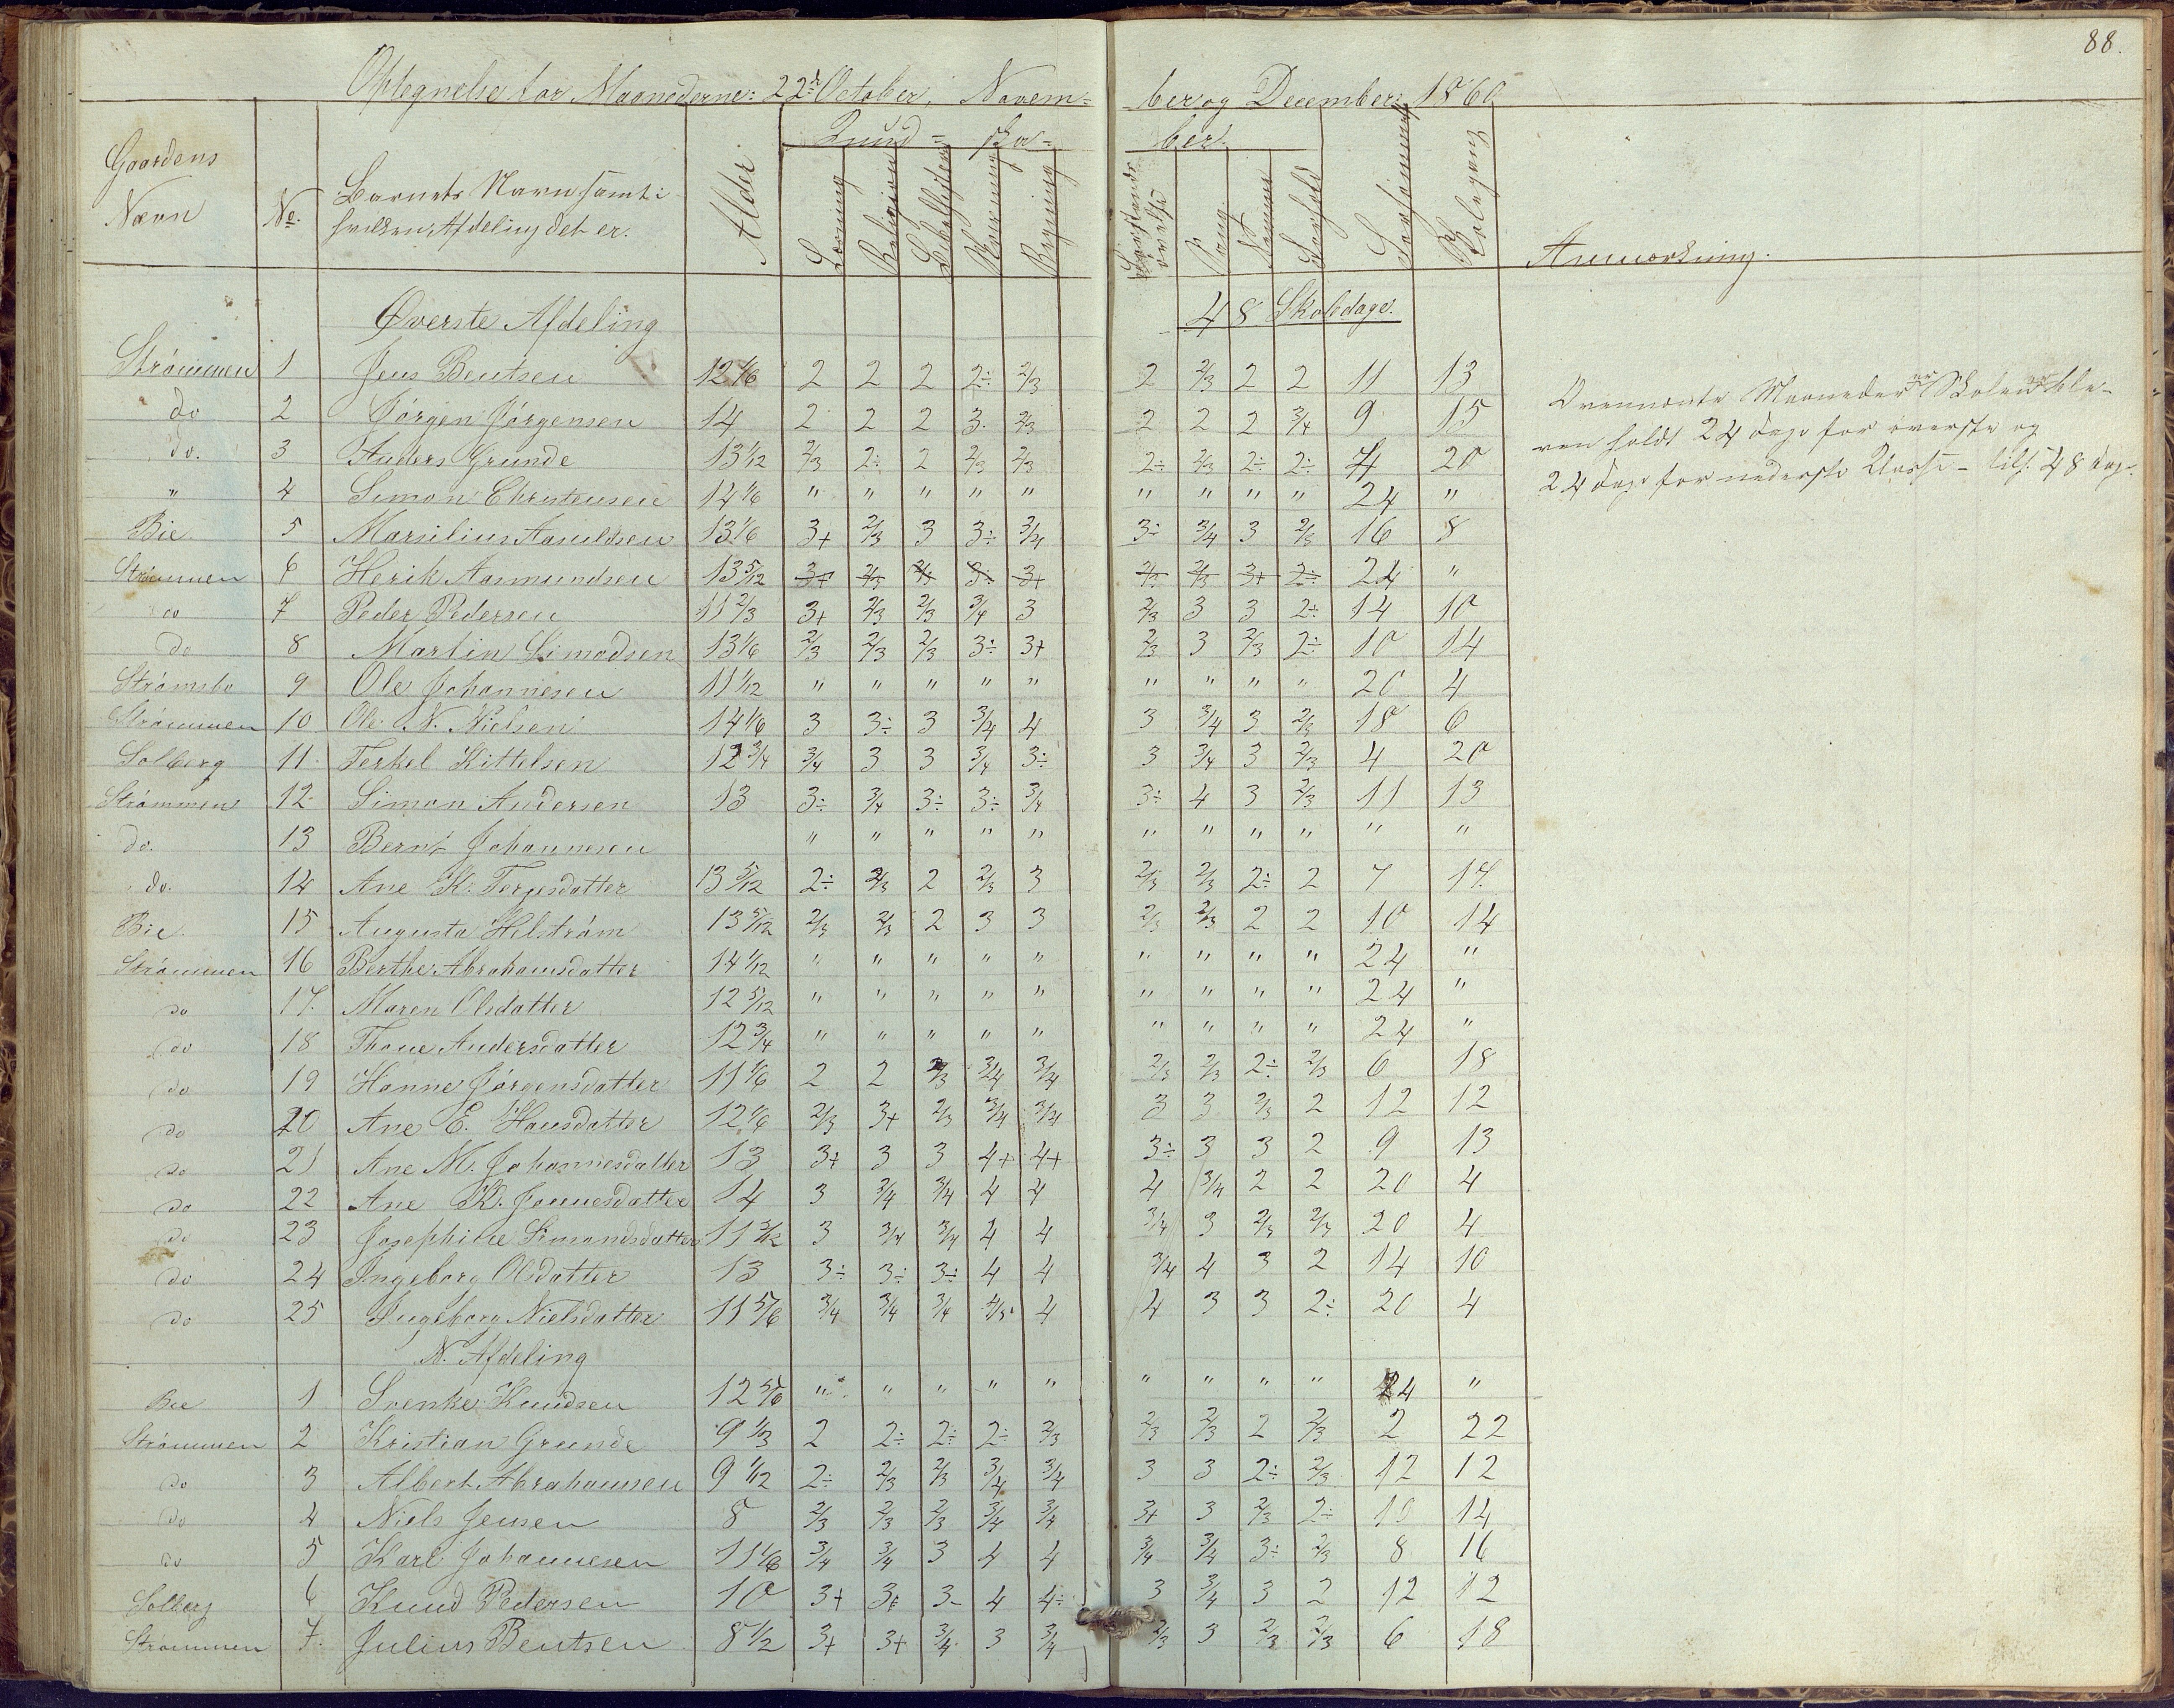 88.
Optegnelse for Maanederne: 22de October, Novem= ber og December 1860
Gaardens Navn No. Barnets Navn samt i hvilken Afdeling det er. Alder Kund= ska= ber.
Læsning Religion Regning Sang Forsømmet Skolegang Anmærkning.
Øverste Afdeling 48 Skoledage.
Strömmen 1 Jens Bentsen 12 1/6 2 2 2 2÷ 2/3 2 2/3 2 2 11 13
do 2 Jörgen Jörgensen 14 2 2 2 3 2/3 2 2 2 3/4 9 15
do. 3 Anders Grunde 13 1/12 2/3 2÷ 2 2/3 2/3 2÷ 2/3 2÷ 2÷ 4 20
" 4 Simon Christensen 14 1/6 " " " " " " " " " 24 "
Bie 5 Marsilius Aanildsen 13 1/6 3+ 2/3 3 3÷ 3/4 3÷ 3/4 3 2/3 16 8
Strömmen 6 Henrik Aasmundsen 13 5/12 3+ 2/3 2/3 3÷ 3+ 2/3 2/3 3+ 2÷ 24 "
do 7 Peder Pedersen 11 2/3 3+ 2/3 2/3 3/4 3 2/3 3 3 2÷ 14 10
do 8 Martin Simodsen 13 1/6 2/3 2/3 2/3 3÷ 3+ 2/3 3 2/3 2÷ 10 14
Strömsbo 9 Ole Johannesen 11 1/12 " " " " " " " " " 20 4
Strömmen 10 Ole N. Nielsen 14 1/6 3 3÷ 3 3/4 4 3 3/4 3 2/3 18 6
Solberg 11 Terkel Kittelsen 12 3/4 3/4 3 3 3/4 3÷ 3 3/4 3 2/3 4 20
Strömmen 12 Simon Andersen 13 3÷ 3/4 3÷ 3÷ 3/4 3÷ 4 3 2/3 11 13
do. 13 Bernt Johannesen " " " " " " " " " " "
do. 14 Ane K. Terjesdatter 13 5/12 2÷ 2/3 2 2/3 3 2/3 2/3 2÷ 2 7 14
Bie 15 Augusta Helström 13 5/12 2/3 2/3 2 3 3 2/3 2/3 2 2 10 14
Strömmen 16 Berthe Abrahamsdatter 14 1/12 " " " " " " " " " 24 "
do 17. Maren Olsdatter 12 5/12 " " " " " " " " " 24 "
do 18 Thone Andersdatter 12 3/4 " " " " " " " " " 24 "
do 19 Hanne Jörgensdatter 11 1/6 2 2 2/3 3/4 3/4 2/3 2/3 2÷ 2/3 6 18
do 20 Ane E. Hansdatter 12 1/6 2/3 3+ 2/3 3/4 3/4 3 3 2/3 2 12 12
do 21 Ane M. Johannesdatter 13 3+ 3 3 4+ 4+ 3÷ 3 3 2 9 13
do 22 Ane K. Jonnesdatter 14 3 3/4 3/4 4 4 4 3/4 2 2 20 4
do 23 Josephine Simondsdatter 11 3/12 3 3/4 3/4 4 4 3/4 3 2/3 2/3 20 4
do 24 Ingeborg Olsdatter 13 3÷ 3÷ 3÷ 4 4 3/4 4 3 2 14 10
do 25 Ingeborg Nielsdatter 11 5/6 3/4 3/4 3/4 4/5 4 4 3 3 2÷ 20 4
N. Afdeling
Bie 1 Svenke Knudsen 12 5/6 " " " " " " " " " 24 "
Strömmen 2 Kristian Grunde 9 1/3 2 2÷ 2÷ 2÷ 2/3 2/3 2/3 2 2/3 2 22
do 3 Albert Abrahamsen 9 1/12 2÷ 2/3 2/3 3/4 3/4 3 3 2÷ 2/3 12 12
do 4 Niels Jensen 8 2/3 2/3 2/3 3/4 3/4 3+ 3 2/3 2÷ 10 14
do 5 Karl Johannesen 11 1/6 3/4 3/4 3 4 4 3/4 3/4 3÷ 2/3 8 16
Solberg 6 Knud Pedersen 10 3+ 3+ 3- 4 4÷ 3 3/4 3 2 12 12
Strömmen 7. Julius Bentsen 8 1/2 3+ 3+ 3/4 3 3/4 2/3 3 2/3 2/3 6 18
Ovennævnte Maaneder er Skolen ble-
ven holdt 24 Dage for øverste og
24 Dage for nederste Klasse - tils. 48 Dage.